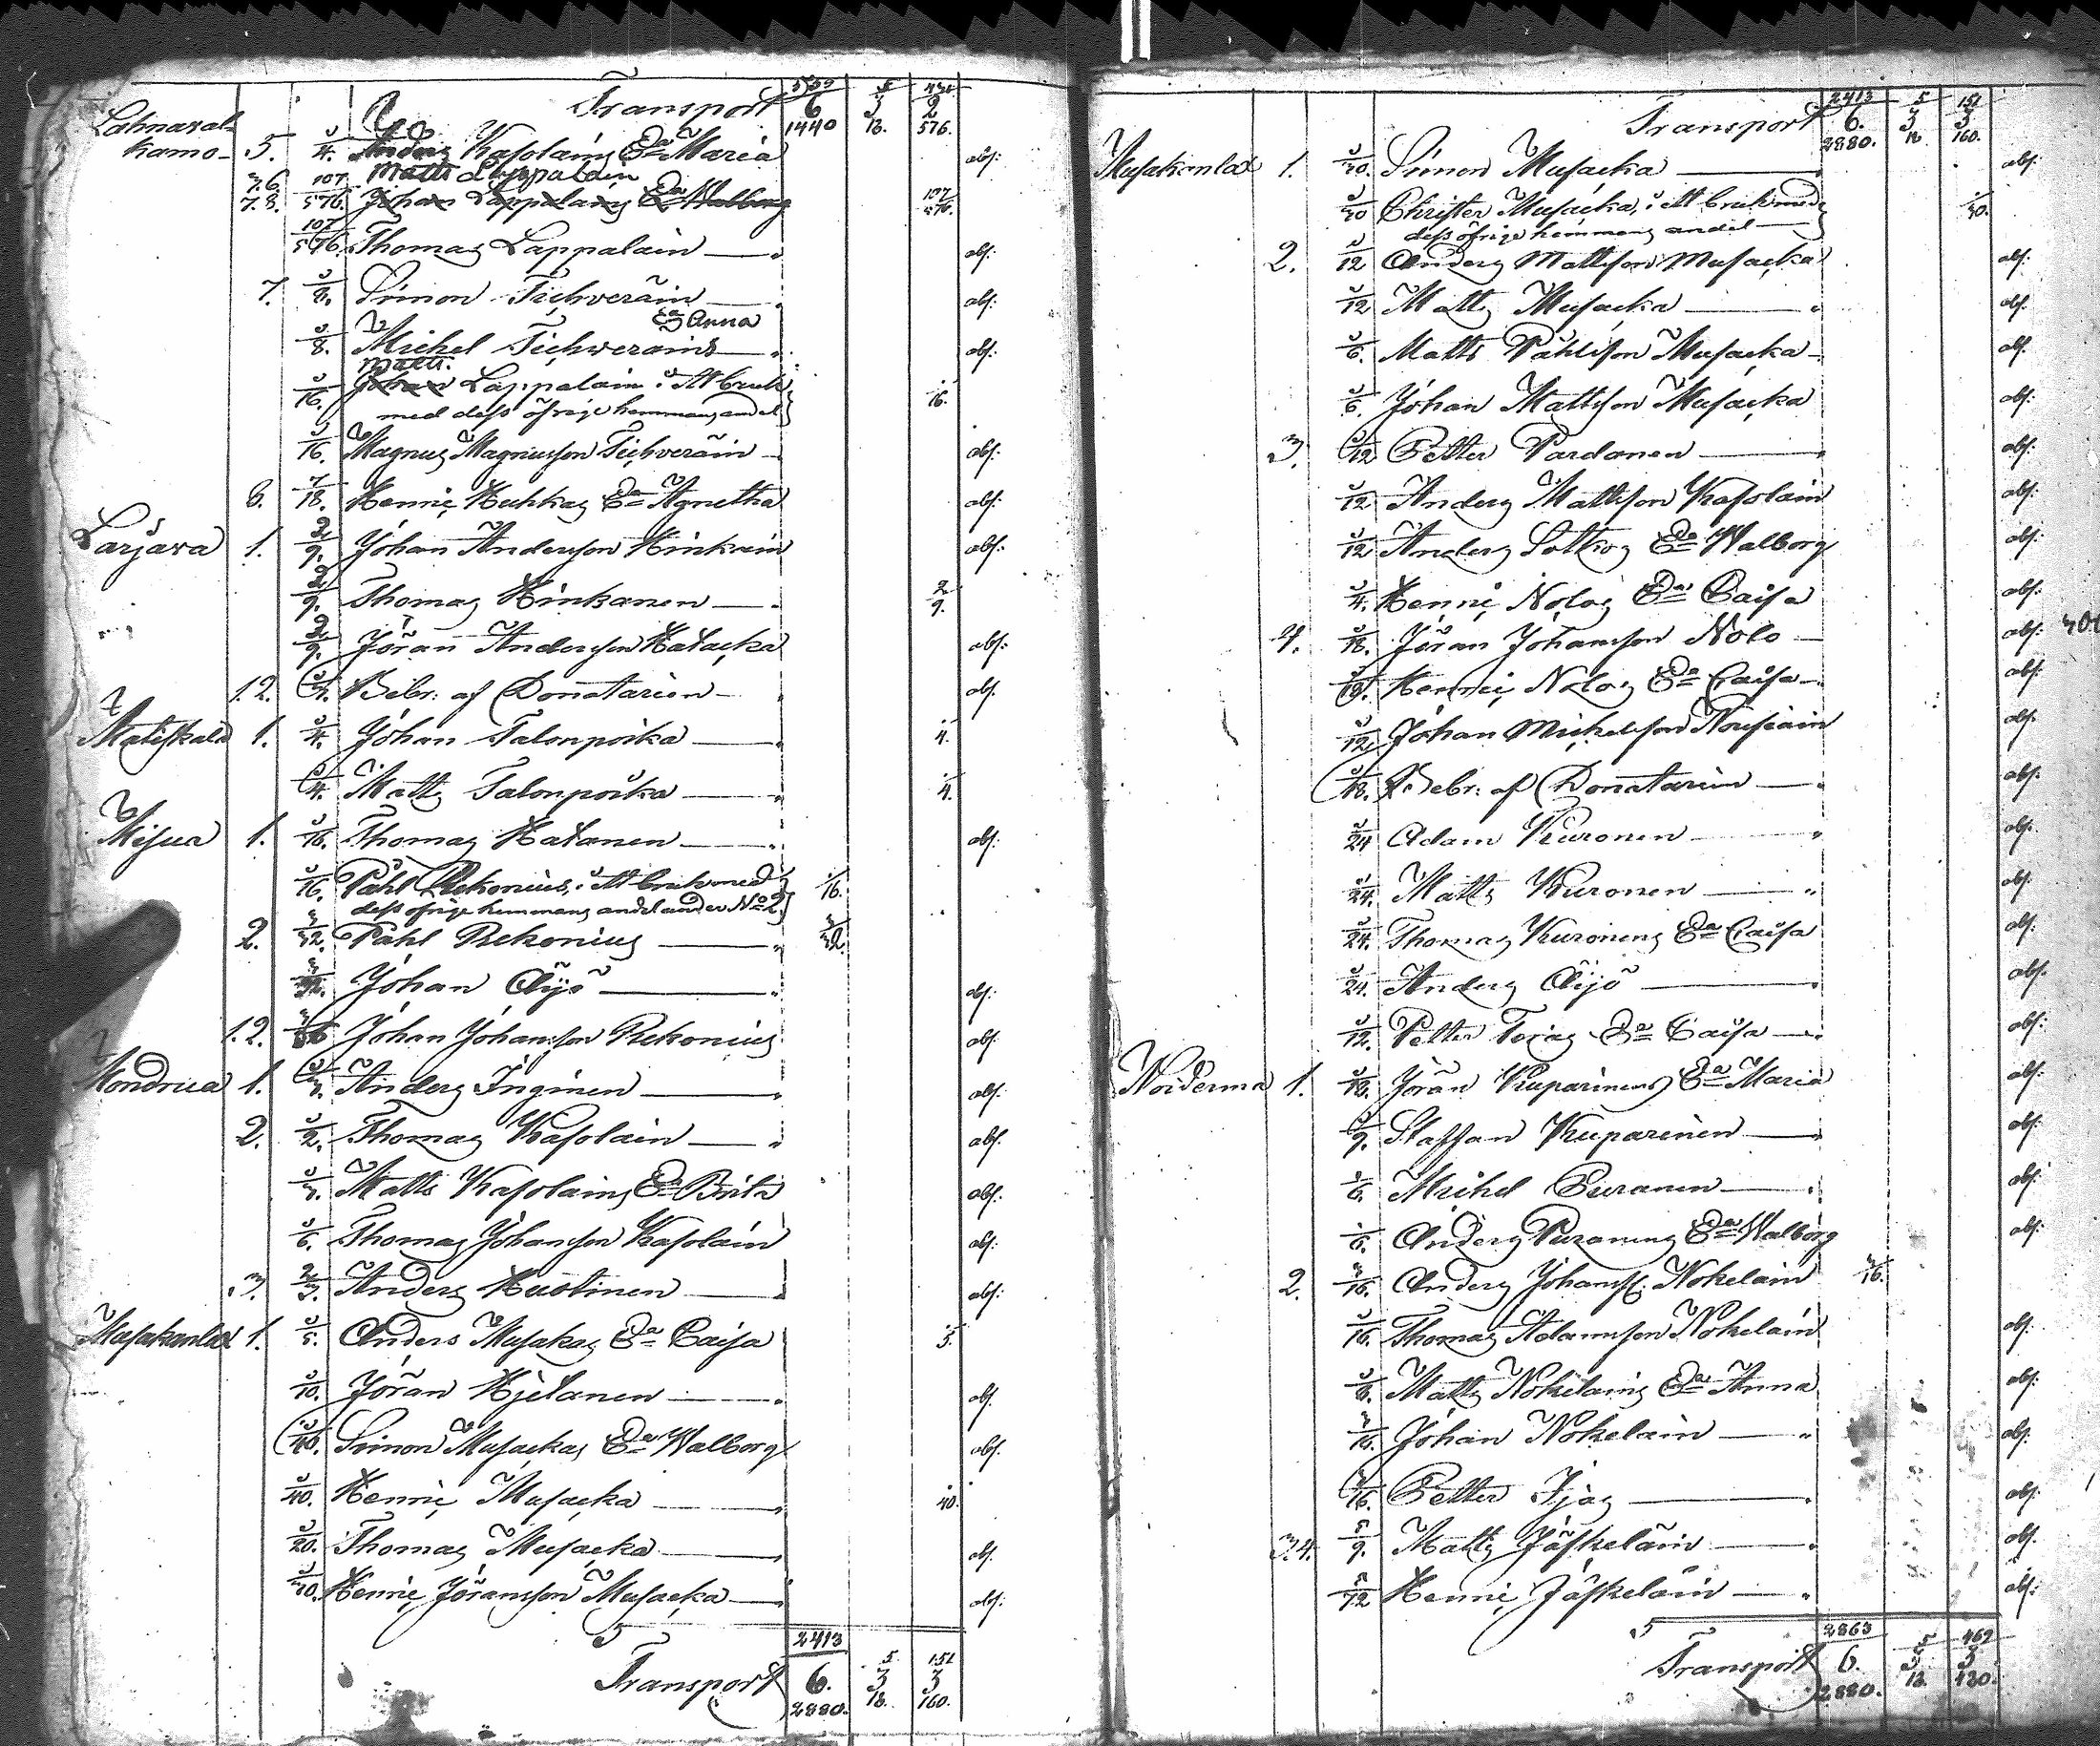 Transport 6 3 2
1440 18. 576.
Lahnaval-
kamo- 5. 1/4. Anders Kasolains Ea Maria abs:
Matts Lappalain
7.8. 107/576. Johan Lappalains Ea Walborg 107/576.
107/576. Thomas Lappalain abs:
7. 1/8. Simon Tichveräin abs:
Ea Anna
1/8. Michel Tichveräins abs:
Matts
1/16. Johan Lappalain i ett bruk 1/16.
med dess öfrige hemmans andel
1/16. Magnus Magnusson Tichveräin abs:
8. 7/18. Henric Huhkas Ea Agnetha abs:
Larjava 1. 2/9. Johan Andersson Hinkain abs:
2/9. Thomas Hinkanen 2/9.
2/9. Jöran Andersson Hatacka abs:
1.2. Bebr: af Donatarien abs.
Matiskala 1. 1/4. Johan Talonpoika 1/4.
1/4. Matts Talonpoika 1/4.
Misua 1. 1/16. Thomas Hatanen abs:
1/16. Påhl Rekonius, i ett bruk med 1/16.
dess öfrige hemmans andel under No 2.
2. 3/32. Påhl Rekonius 3/32.
Johan Äijö abs:
1.2. Johan Johansson Rekonius abs:
Mondrua 1. 1/3. Anders Inginen abs:
2. 1/2. Thomas Kasolain abs:
1/3. Matts Kasolains Ea Brita abs:
1/6. Thomas Johansson Kasolain abs:
3. 2/3. Anders Huotinen abs:
Musakanlax 1. 1/5. Anders Musakas Ea Caisa 1/5.
1/10. Jöran Hjetanen abs.
1/40. Simon Musackas Ea Walborg abs:
1/40. Henric Musacka 1/40.
1/20. Thomas Musacka abs.
Henric Jöransson Musacka abs:
2413 5 151
Transport 6. 3 3
2880. 18. 160.
2413 5 151
Transport 6. 3 3
2880. 18 160.
Musakanlax 1. Simon Musacka abs:
Christer Musacka, i ett bruk med
dess öfrige hemmans andel
2. 1/12 Anders Mattsson Musacka abs:
1/12 Matts Musacka abs:
1/6. Matts Påhlsson Musacka abs.
1/6. Johan Mattsson Musacka abs:
3. 1/12 Petter Pardanen abs:
1/12 Anders Mattsson Kasolain abs:
1/12 Anders Sotkos Ea Walborg abs:
1/4. Henric Nolos Ea Caisa abs:
4. 1/18. Jöran Johansson Nolo abs:
Henric Nolos Ea Caisa abs:
1/12. Johan Michelsson Nousiain abs.
1/18. Bebr: af Donatarien abs:
1/24 Adam Kuronen abs.
1/24. Matts Kuronen abs.
1/24. Thomas Kuronens Ea Caisa abs:
1/24. Anders Äijö abs.
1/12. Petter Toias Ea Caisa abs:
Noiderma 1. 1/18. Jöran Kuparinens Ea Maria abs:
1/9. Staffan Kuparinen abs:
1/6. Michel Puranen abs:
1/6. Anders Puranens Ea Walborg abs:
2. 3/16. Anders Johanss. Nokelain 3/16.
1/16. Thomas Adamsson Nokelain abs.
1/8. Matts Nokelains Ea Anna abs:
3/16. Johan Nokelain abs.
3/16. Petter Ijas abs.
3.4. 5/9. Matts Jäskeläin abs.
5/72 Henric Jäskeläin abs:
2863 5 469
Transport 6. 3 3
2880. 18. 480.